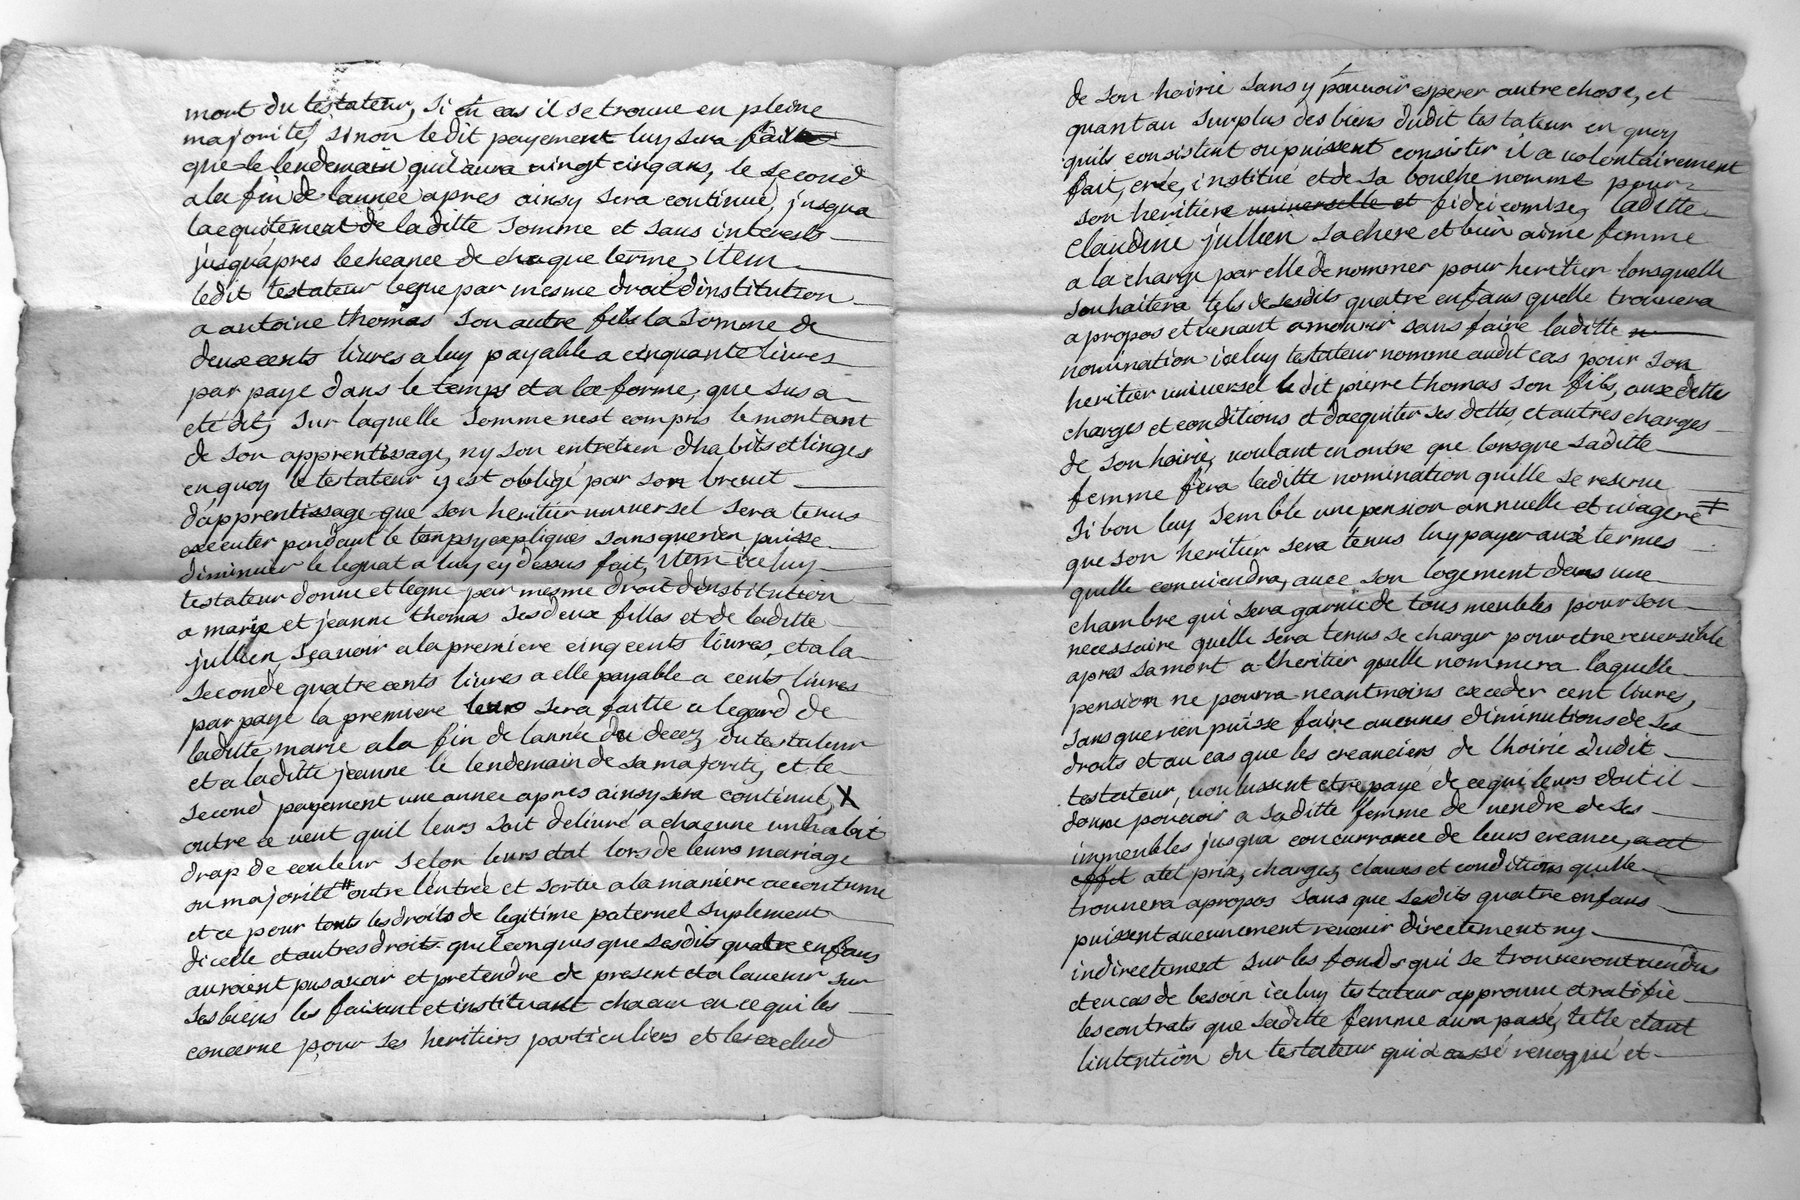 mort du testateur, si en cas il se troune en pleine
majorité, sinon ledit payement luy sera faitte
que le lendemain quil aura vingt cinq ans, le second
a la fin de lannée apres ainsy sera continué, jusqua
lacquitement de laditte somme et sans interests
jusquapres lecheance de chaque terme, item
ledit testateur legue par mesme droit dinstitution
a antoine thomas son autre fils la somme de
deux cents livres a luy payable a cinquante livres
par paye dans le temps et a la forme, que sus a
eté dit, sur laquelle somme nest compris le montant
de son apprentissage, ny son entretien dhabits et linges
en quoy le testateur y est obligé par son brevet
dapprentissage que son heritier universel sera tenus
executer pendant le temps y expliqués sans que rien puisse
diminuer le leguat a luy cy dessus fait, item iceluy
testateur donne et legue par mesme droit dinstitution
a marie et jeanne thomas ses deux filles et de laditte
jullien, sçavoir a la premiere cinq cents livres, et a la
seconde quatre cents livres a elle payable a cents livres
par paye la premiere sera faitte a legard de
laditte marie a la fin de lannée du decez du testateur
et a laditte jeanne le lendemain de sa majorité, et le
second payement une année apres ainsy sera continué, X
outre ce veut quil leurs soit delivré a chacune un habit
drap de couleur selon leurs etat lors de leurs mariage
ou majorité # outre lentrée et sortie a la maniere accoutume
et ce pour touts les droits de legitime paternel suplement
dicelle et autres droits quelconques que sesdits quatre enfans
auroient pus avoir et pretendre de present et a lavenir sur
ses biens les faisant et instituant chacun en ce qui les
concerne pour ses heritiers particuliers et les exclud
de son hoirie sans y pouvoir esperer autre chose, et
quant au surplus des biens dudit testateur en quoy
quils consistent ou puissent consister il a volontairement
fait, creé, institué et de sa bouche nommé pour
son heritiere universelle et fideicomise, laditte
Claudine jullien sa chere et bien aimé femme
a la charge par elle de nommer pour heritier lorsquelle
souhaitera tels de sesdits quatre enfans quelle trouvera
a propos et venant a mourir sans faire laditte n
nomination iceluy testateur nomme audit cas pour son
heritier universel ledit pierre thomas son fils, aux dettes
charges et conditions et dacquiter ses dettes, et autres charges
de son hoirie, voulant en outre que lorsque saditte
femme fera laditte nomination quelle se reserve
si bon luy semble une pension annuelle et viagere #
que son heritier sera tenus luy payer aux termes
quelle conviendra, avec son logement dans une
chambre qui sera garnie de tous meubles pour son
necessaire quelle sera tenus se charger pour etre reversible
apres sa mort a lheritier quelle nommera laquelle
pension ne pourra neantmoins exceder cent livres,
sans que rien puisse faire aucunes diminutions de ses
droits et au cas que les creanciers de lhoirie dudit
testateur, voulussent etre payé de ce qui leurs doit il
donne pouvoir a saditte femme de vendre de ses
immeubles jusqua concurrance de leurs creance, a cet
effet a tel prix, charges, clauses et conditions quelle
trouvera a propos sans que sesdits quatre enfans
puissent aucunement revenir directement ny
indirectement sur les fonds qui se trouveront vendus
et en cas de besoin iceluy testateur approuve et ratifie
les contrats que saditte femme aura passé, telle etant
lintention du testateur qui a cassé revoqué et